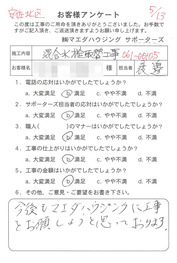 安佐北区
5/13
お客様アンケート
この度は工事のご用命を頂きありがとうございました。お手数で
すがご記入頂き、ご返送頂きますようお願い申し上げます。
㈱マエダハウジング サポーターズ
施工内容 混合水栓取替工事 061-00105
お名前 様 担当者
1. 電話の応対はいかがでしたでしょうか?
a. 大変満足 b. 満足 c. やや不満 d. 不満
2. サポーターズ担当者の応対はいかがでしたでしょうか?
a. 大変満足 b. 満足 c. やや不満 d. 不満
3. 職人の応対はいかがでしたでしょうか?
a. 大変満足 b. 満足 c. やや不満 d. 不満
4. 工事の仕上がりはいかがでしたでしょうか?
a. 大変満足 b. 満足 c. やや不満 d. 不満
5. お値段はいかがでしたでしょうか?
a. 大変満足 b. 満足 c. やや不満 d. 不満
6. その他、ご意見・ご要望をお書き下さい。
今後もマエダハウジングに工事
をお願しようと思っております。